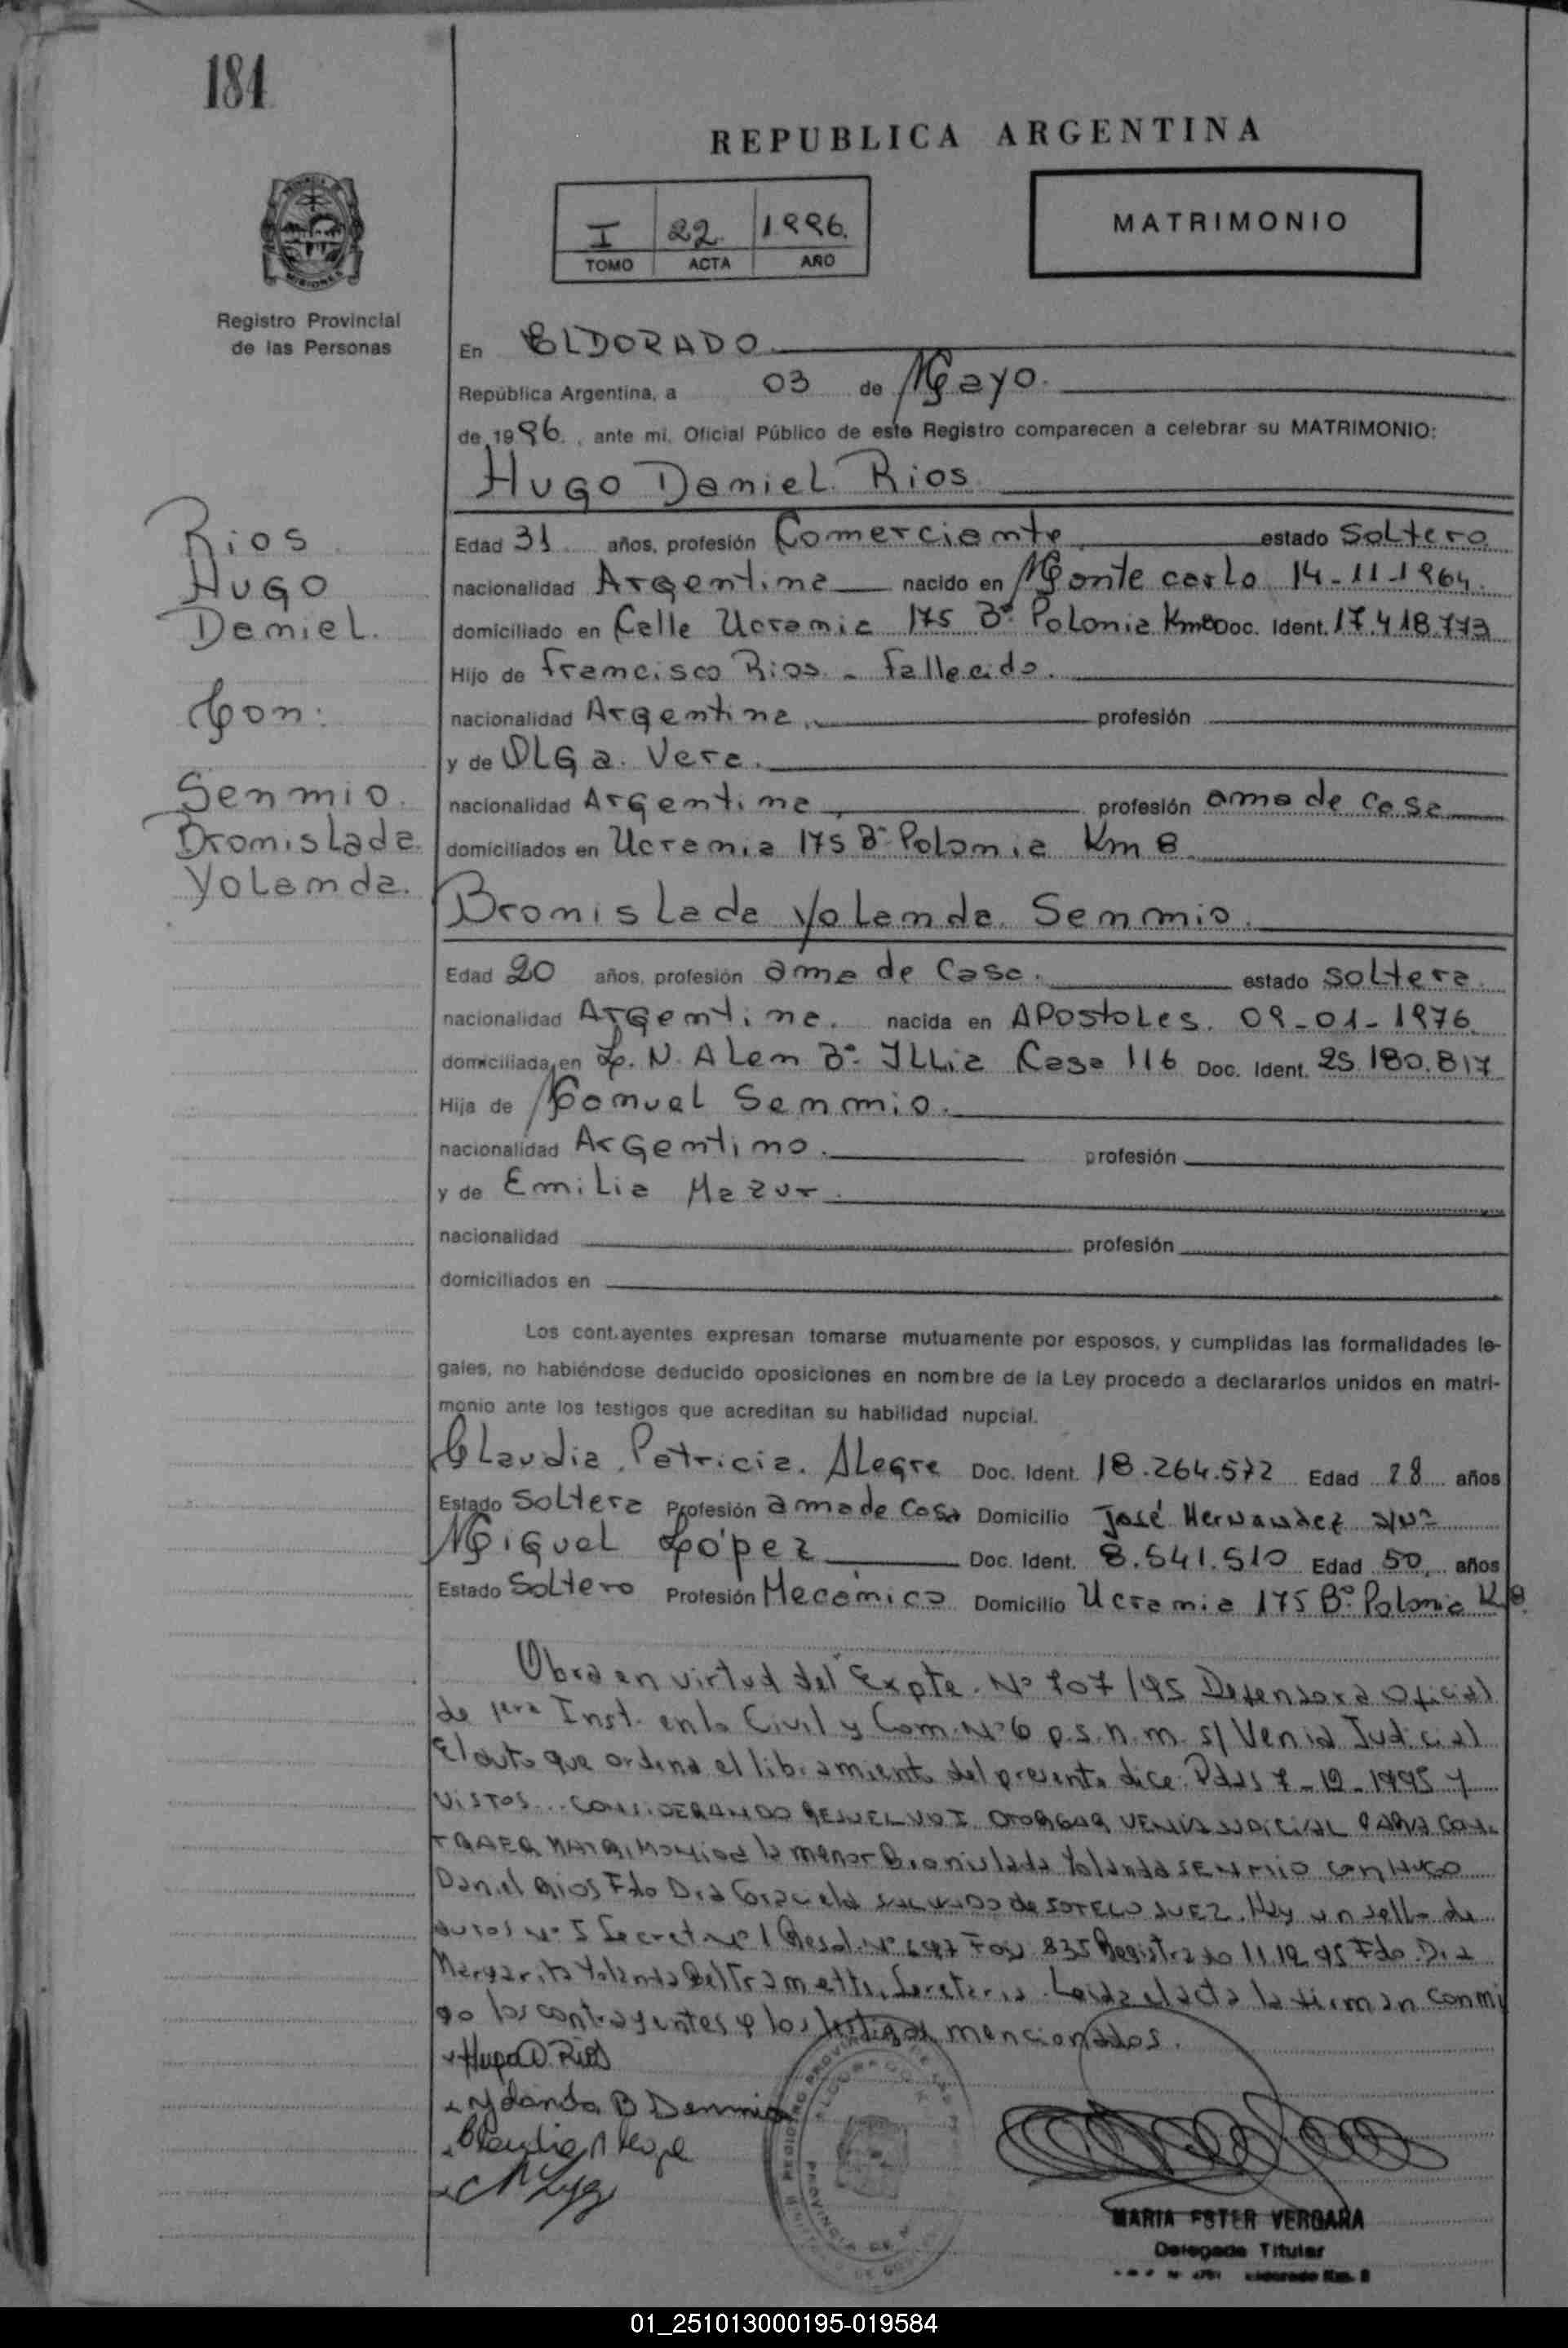 184
REPUBLICA ARGENTINA
I 22 1996.
TOMO ACTA AÑO
MATRIMONIO
Registro Provincial
de las Personas
En ELDORADO
República Argentina, a 03 de Mayo.
de 1996., ante mi, Oficial Público de este Registro comparecen a celebrar su MATRIMONIO:
Hugo Daniel Rios
Rios
Hugo
Daniel.
Con:
Senmio.
Bronislada
Yolanda.
Edad 31 años, profesión Comerciante estado Soltero
nacionalidad Argentina nacido en Monte carlo 14-11-1964.
domiciliado en Calle Ucrania 175 Bº Polonia Km8 Doc. Ident. 17.418.773
Hijo de Francisco Rios - Fallecido.
nacionalidad Argentina profesión
y de Olga Vera.
nacionalidad Argentina profesión ama de casa
domiciliados en Ucrania 175 Bº Polonia Km 8
Bronislada Yolanda Senmio.
Edad 20 años, profesión ama de casa. estado soltera.
nacionalidad Argentina. nacida en APostoles. 09-01-1976
domiciliada en L. N. Alem Bº ILLia Casa 116 Doc. Ident. 25.180.817
Hija de Manuel Senmio.
nacionalidad Argentino. profesión
y de Emilia Mazur.
nacionalidad profesión
domiciliados en
Los contrayentes expresan tomarse mutuamente por esposos, y cumplidas las formalidades le-
gales, no habiéndose deducido oposiciones en nombre de la Ley procedo a declararlos unidos en matri-
monio ante los testigos que acreditan su habilidad nupcial.
Claudia Patricia Alegre Doc. Ident. 18.264.572 Edad 28 años
Estado Soltera Profesión ama de casa Domicilio José Hernandez s/nº
Miguel López Doc. Ident. 8.541.510 Edad 50 años
Estado Soltero Profesión Mecánico Domicilio Ucrania 175 Bº Polonia K 8
Obra en virtud del Expte. Nº 707/95 Defensora Oficial
de 1era Inst. en lo Civil y Com. Nº 6 p.s.n.m. s/ Venia Judicial
El auto que ordena el libramiento del presente dice: Pdas 7-12-1995 y
VISTOS... CONSIDERANDO RESUELVO I OTORGAR VENIA JUDICIAL PARA CON-
TRAER MATRIMONIO a la menor Bronislada Yolanda SENMIO con HUGO
Daniel Rios Fdo Dra Graciela de SOTELO JUEZ. Hay un sello de
autos Nº I Secret. Nº 1 Resol. Nº 697 835 Registrado 11.12.95 Fdo. Dra
Margarita Yolanda Beltrametti, Secretaria. Leida el acta la firman conmi
go los contrayentes y los testigos mencionados.
Hugo D. Rios
Yolanda B Senmio
Claudia Alegre
MARIA ESTER VERGARA
Delegada Titular
01_251013000195-019584